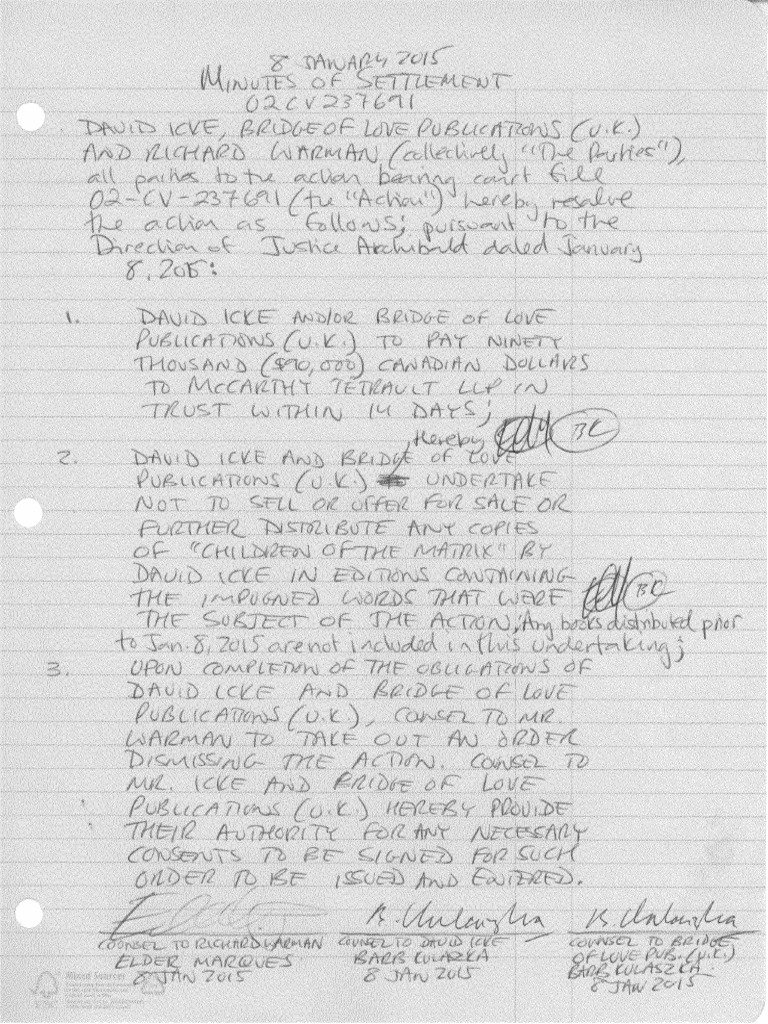 8 JANUARY 2015
MINUTES OF SETTLEMENT
02CV237691
DAVID ICKE, BRIDGE OF LOVE PUBLICATIONS (U.K.)
AND RICHARD WARMAN (collectively "The Parties"),
all parties to the action bearing court file
02-CV-237691 (the "Action") hereby resolve
the action as follows; pursuant to the
Direction of Justice Archibald dated January
8, 2015:
1. DAVID ICKE AND/OR BRIDGE OF LOVE
PUBLICATIONS (U.K.) TO PAY NINETY
THOUSAND ($90,000) CANADIAN DOLLARS
TO McCARTHY TETRAULT LLP IN
TRUST WITHIN 14 DAYS;
, hereby BK
2. DAVID ICKE AND BRIDGE OF LOVE
PUBLICATIONS (U.K.) UNDERTAKE
NOT TO SELL OR OFFER FOR SALE OR
FURTHER DISTRIBUTE ANY COPIES
OF "CHILDREN OF THE MATRIX" BY
DAVID ICKE IN EDITIONS CONTAINING
THE IMPUGNED WORDS THAT WERE BK
THE SUBJECT OF THE ACTION; Any books distributed prior
to Jan. 8, 2015 are not included in this undertaking;
3. UPON COMPLETION OF THE OBLIGATIONS OF
DAVID ICKE AND BRIDGE OF LOVE
PUBLICATIONS (U.K.), COUNSEL TO MR.
WARMAN TO TAKE OUT AN ORDER
DISMISSING THE ACTION. COUNSEL TO
MR. ICKE AND BRIDGE OF LOVE
PUBLICATIONS (U.K.) HEREBY PROVIDE
THEIR AUTHORITY FOR ANY NECESSARY
CONSENTS TO BE SIGNED FOR SUCH
ORDER TO BE ISSUED AND ENTERED.
COUNSEL TO RICHARD WARMAN
ELDER MARQUES
8 JAN 2015
COUNSEL TO DAVID ICKE
BARB KULAZKA
8 JAN 2015
COUNSEL TO BRIDGE
OF LOVE PUB. (U.K.)
BARB KULASZKA
8 JAN 2015
Mixed Sources